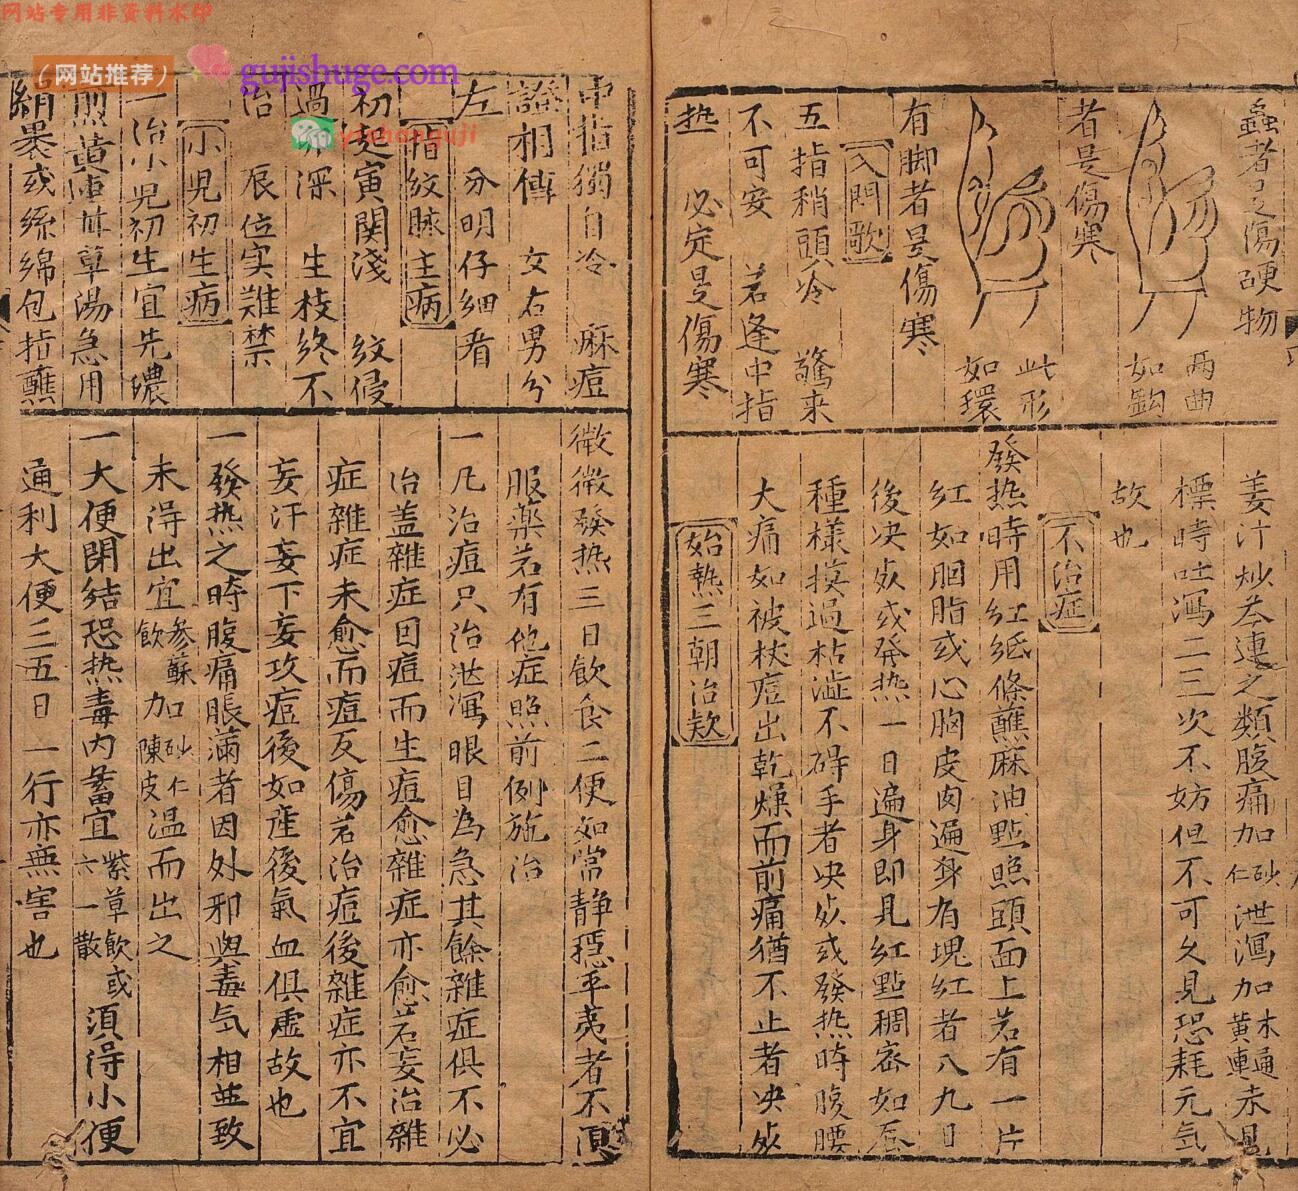 网站专用非资料水印
（网站推荐）
gujishuge.com
yizhanguji
蟲者是傷硬物
兩曲
如鈎
者是傷寒
此形
如環
有脚者是傷寒
入門歌
五指稍頭冷 驚来
不可安 若逢中指
热 必定是傷寒
姜汁炒芩連之類腹痛加砂仁泄瀉加木通黄連未見
標時吐瀉二三次不妨但不可久見恐耗元氣
故也
不治症
發热時用紅紙條蘸麻油點照頭面上若有一片
紅如胭脂或心胸皮肉遍身有塊紅者八九日
後决死或發热一日遍身即見紅點稠密如蚕
種樣摸過枯澁不碍手者决死或發热時腹腰
大痛如被杖痘出乾燥而前痛猶不止者决死
始熱三朝治欵
中指獨自冷 麻痘
證相傳 女右男分
左 分明仔細看
指紋脉主病
初起寅関淺 紋侵
過 深 生枝终不
治 辰位实難禁
小児初生病
一治小児初生宜先濃
煎黄連甘草湯急用
絹裹或絲綿包指蘸
微微發热三日飲食二便如常静穩平夷者不須
服藥若有他症照前例施治
一凡治痘只治泄瀉眼目為急其餘雜症俱不必
治盖雜症因痘而生痘愈雜症亦愈若妄治雜
症雜症未愈而痘反傷若治痘後雜症亦不宜
妄汗妄下妄攻痘後如産後氣血俱虚故也
一發热之時腹痛脹滿者因外邪與毒気相並致
未得出宜參蘇飲加砂仁陳皮温而出之
一大便閉結恐热毒内蓄宜紫草飲或六一散須得小便
通利大便三五日一行亦無害也